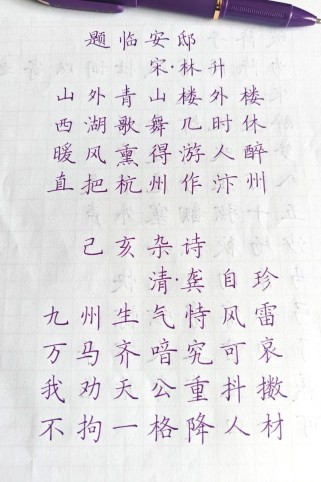 题临安邸
宋·林升
山外青山楼外楼
西湖歌舞几时休
暖风熏得游人醉
直把杭州作汴州
己亥杂诗
清·龚自珍
九州生气恃风雷
万马齐喑究可哀
我劝天公重抖擞
不拘一格降人材